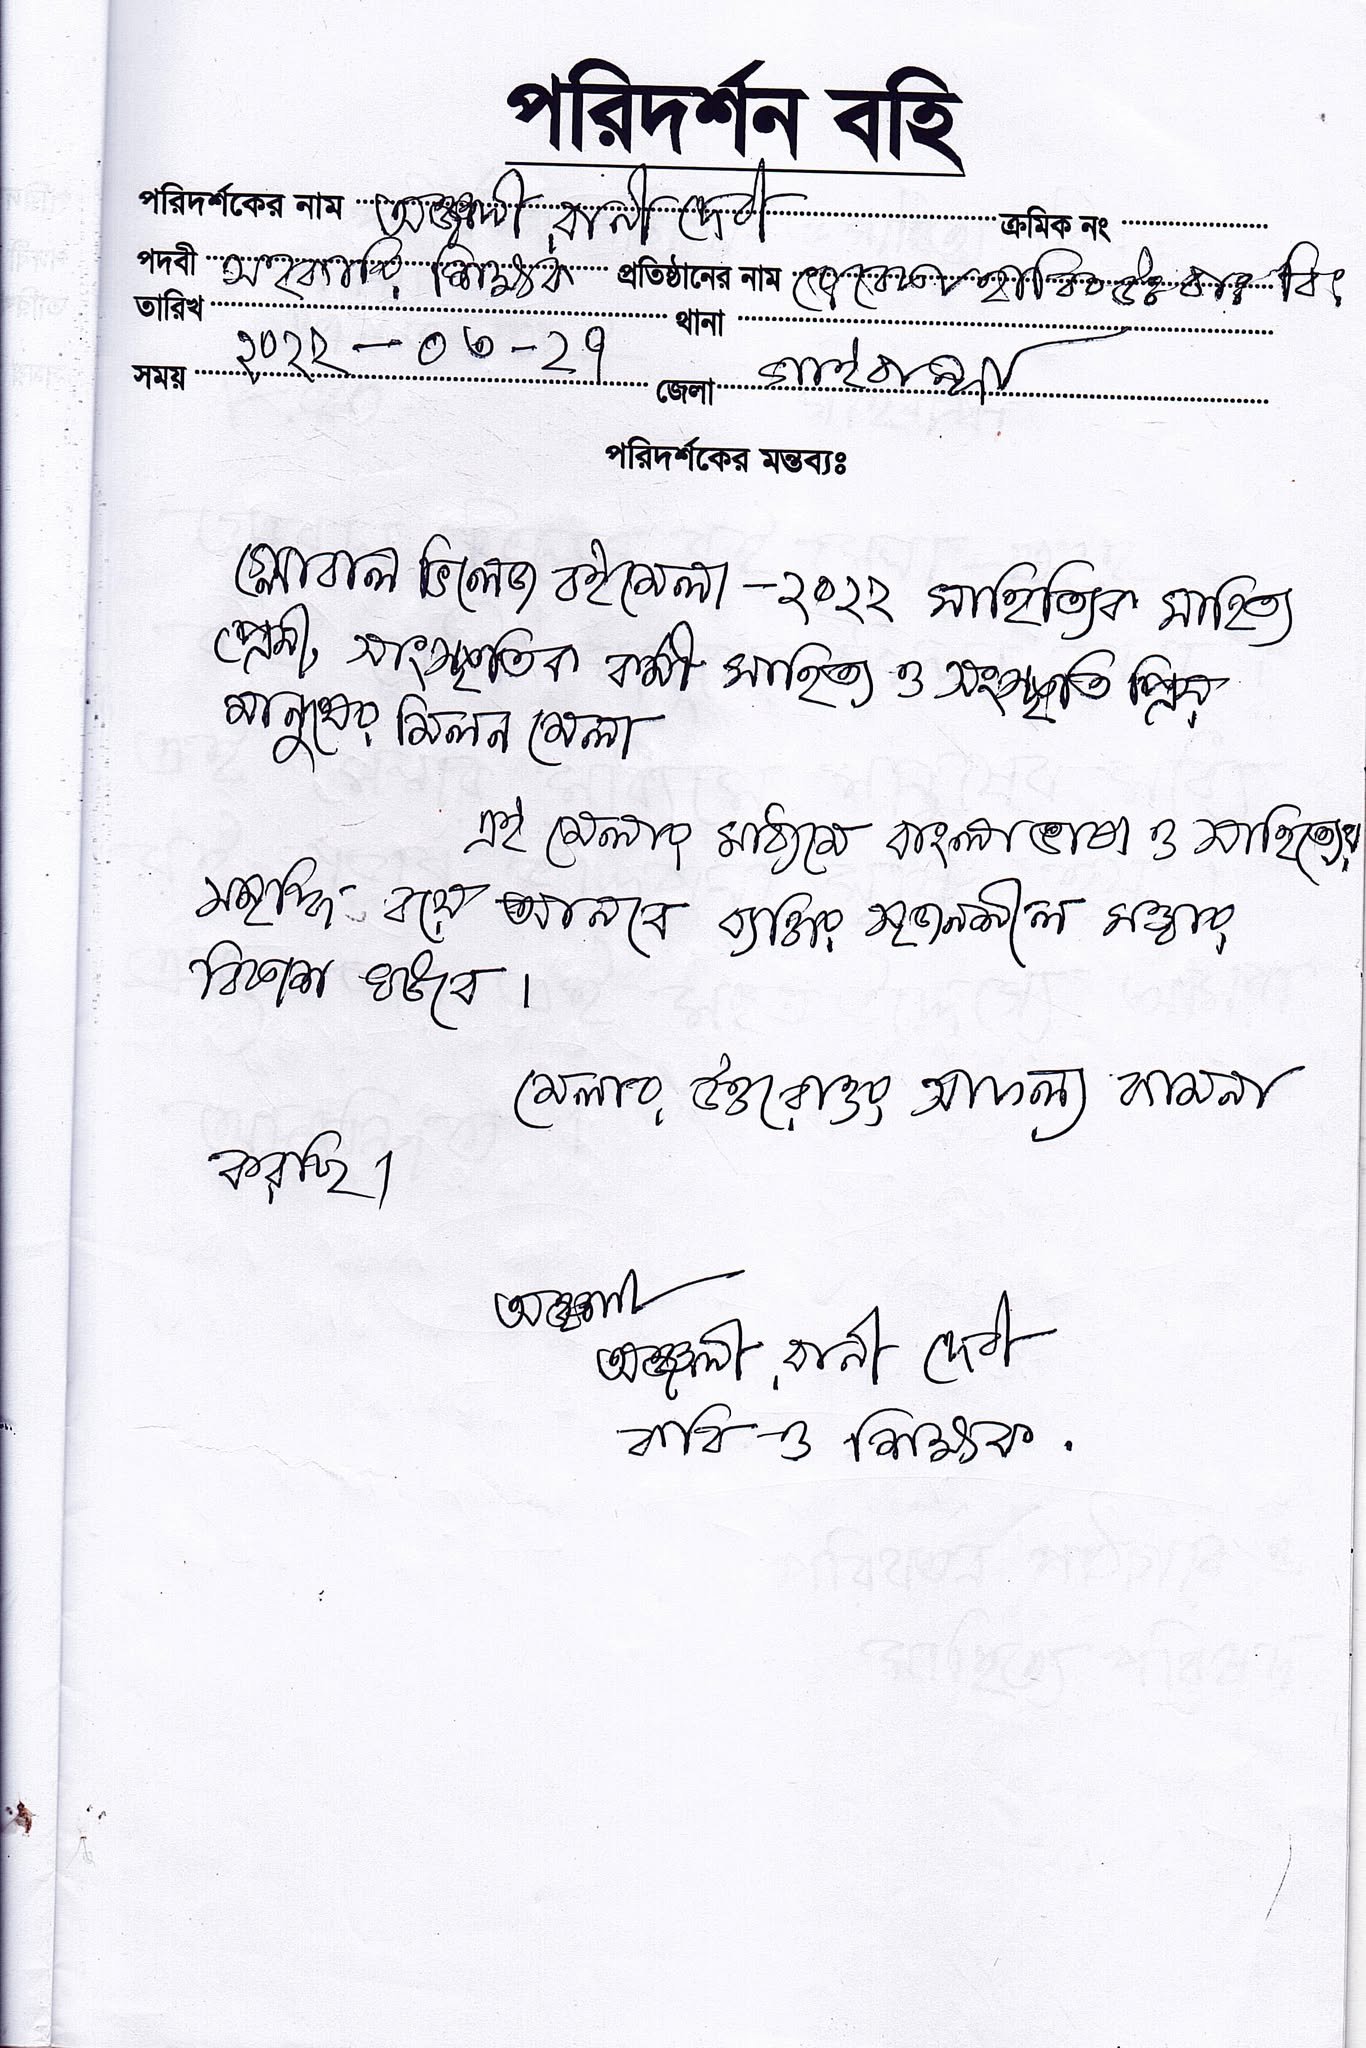 পরিদর্শন বহি
পরিদর্শকের নাম অঞ্জলী রানী দেবী ক্রমিক নং
পদবী সহকারি শিক্ষক প্রতিষ্ঠানের নাম
তারিখ থানা
সময় ২০২২-০৩-২৭ জেলা গাইবান্ধা
পরিদর্শকের মন্তব্যঃ
গ্লোবাল ভিলেজ বইমেলা -২০২২ সাহিত্যিক সাহিত্য
প্রেমী, সাংস্কৃতিক কর্মী সাহিত্য ও সংস্কৃতি প্রিয়
মানুষের মিলন মেলা
এই মেলার মাধ্যমে বাংলা ভাষা ও সাহিত্যের
সমৃদ্ধি বয়ে আনবে ব্যক্তির সৃজনশীল সত্তার
বিকাশ ঘটবে।
মেলার উত্তরোত্তর সাফল্য কামনা
করছি।
অঞ্জলী
অঞ্জলী রানী দেবী
কবি ও শিক্ষক.